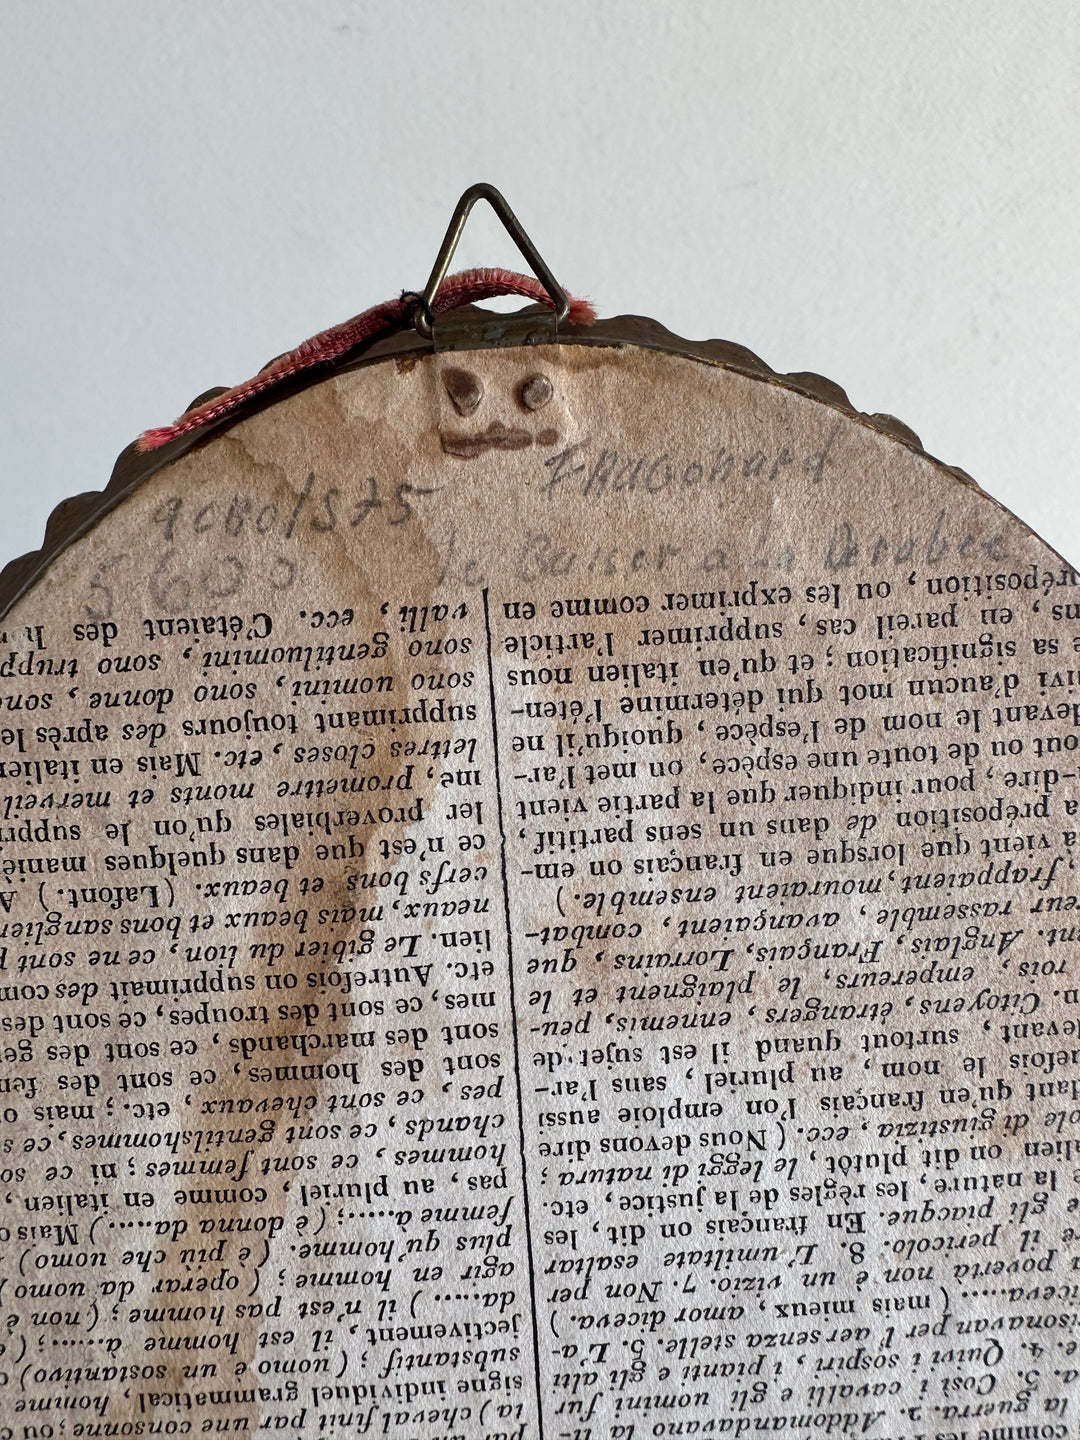 Fragonard
5600
le Baiser a la Derobee
la guerra. 2. Addomandavano la li-
a. 3. Così i cavalli e gli uomini fur
e. 4. Quivi i sospiri, i pianti e gli alti
isonavan per l'aer senza stelle. 5. L'a-
iceva..... (mais mieux, amor diceva.)
a povertà non è un vizio. 7. Non per
re il pericolo. 8. L'umiltate esaltar
e gli piacque. En français on dit, les
e la nature, les règles de la justice, etc.
alien on dit plutôt, le leggi di natura;
ole di giustizia, ecc. (Nous devons dire
dant qu'en français l'on emploie aussi
uefois le nom, au pluriel, sans l'ar-
levant, surtout quand il est sujet de
n. Citoyens, étrangers, ennemis, peu-
rois, empereurs, le plaignent et le
nt. Anglais, Français, Lorrains, que
reur rassemble, avançaient, combat-
, frappaient, mouraient ensemble.)
a vient que lorsque en français on em-
a préposition de dans un sens partitif,
-dire, pour indiquer que la partie vient
out ou de toute une espèce, on met l'ar-
devant le nom de l'espèce, quoiqu'il ne
ivi d'aucun mot qui détermine l'éten-
e sa signification; et qu'en italien nous
ns, en pareil cas, supprimer l'article
réposition, ou les exprimer comme en
(cheval) finit par une consonne; ou
signe individuel grammatical, homme
substantif; (uomo è un sostantivo)
jectivement, il est homme à.....; (
da.....) il n'est pas homme; (non è
agir en homme; (operar da uomo)
plus qu'homme. (è più che uomo)
femme à.....; (è donna da.....) Mais
pas, au pluriel, comme en italien,
hommes, ce sont femmes; ni ce so
chands, ce sont gentilshommes, ce s
pes, ce sont chevaux, etc.; mais o
sont des hommes, ce sont des fem
sont des marchands, ce sont des ge
mes, ce sont des troupes, ce sont des
etc. Autrefois on supprimait des com
lien. Le gibier du lion, ce ne sont p
neaux, mais beaux et bons sanglier
cerfs bons et beaux. (Lafont.) A
ce n'est que dans quelques maniè
ler proverbiales qu'on le suppri
me, promettre monts et merveil
lettres closes, etc. Mais en italien
supprimant toujours des après le
sono uomini, sono donne, sono
sono gentiluomini, sono trupp
valli, ecc. C'étaient des h